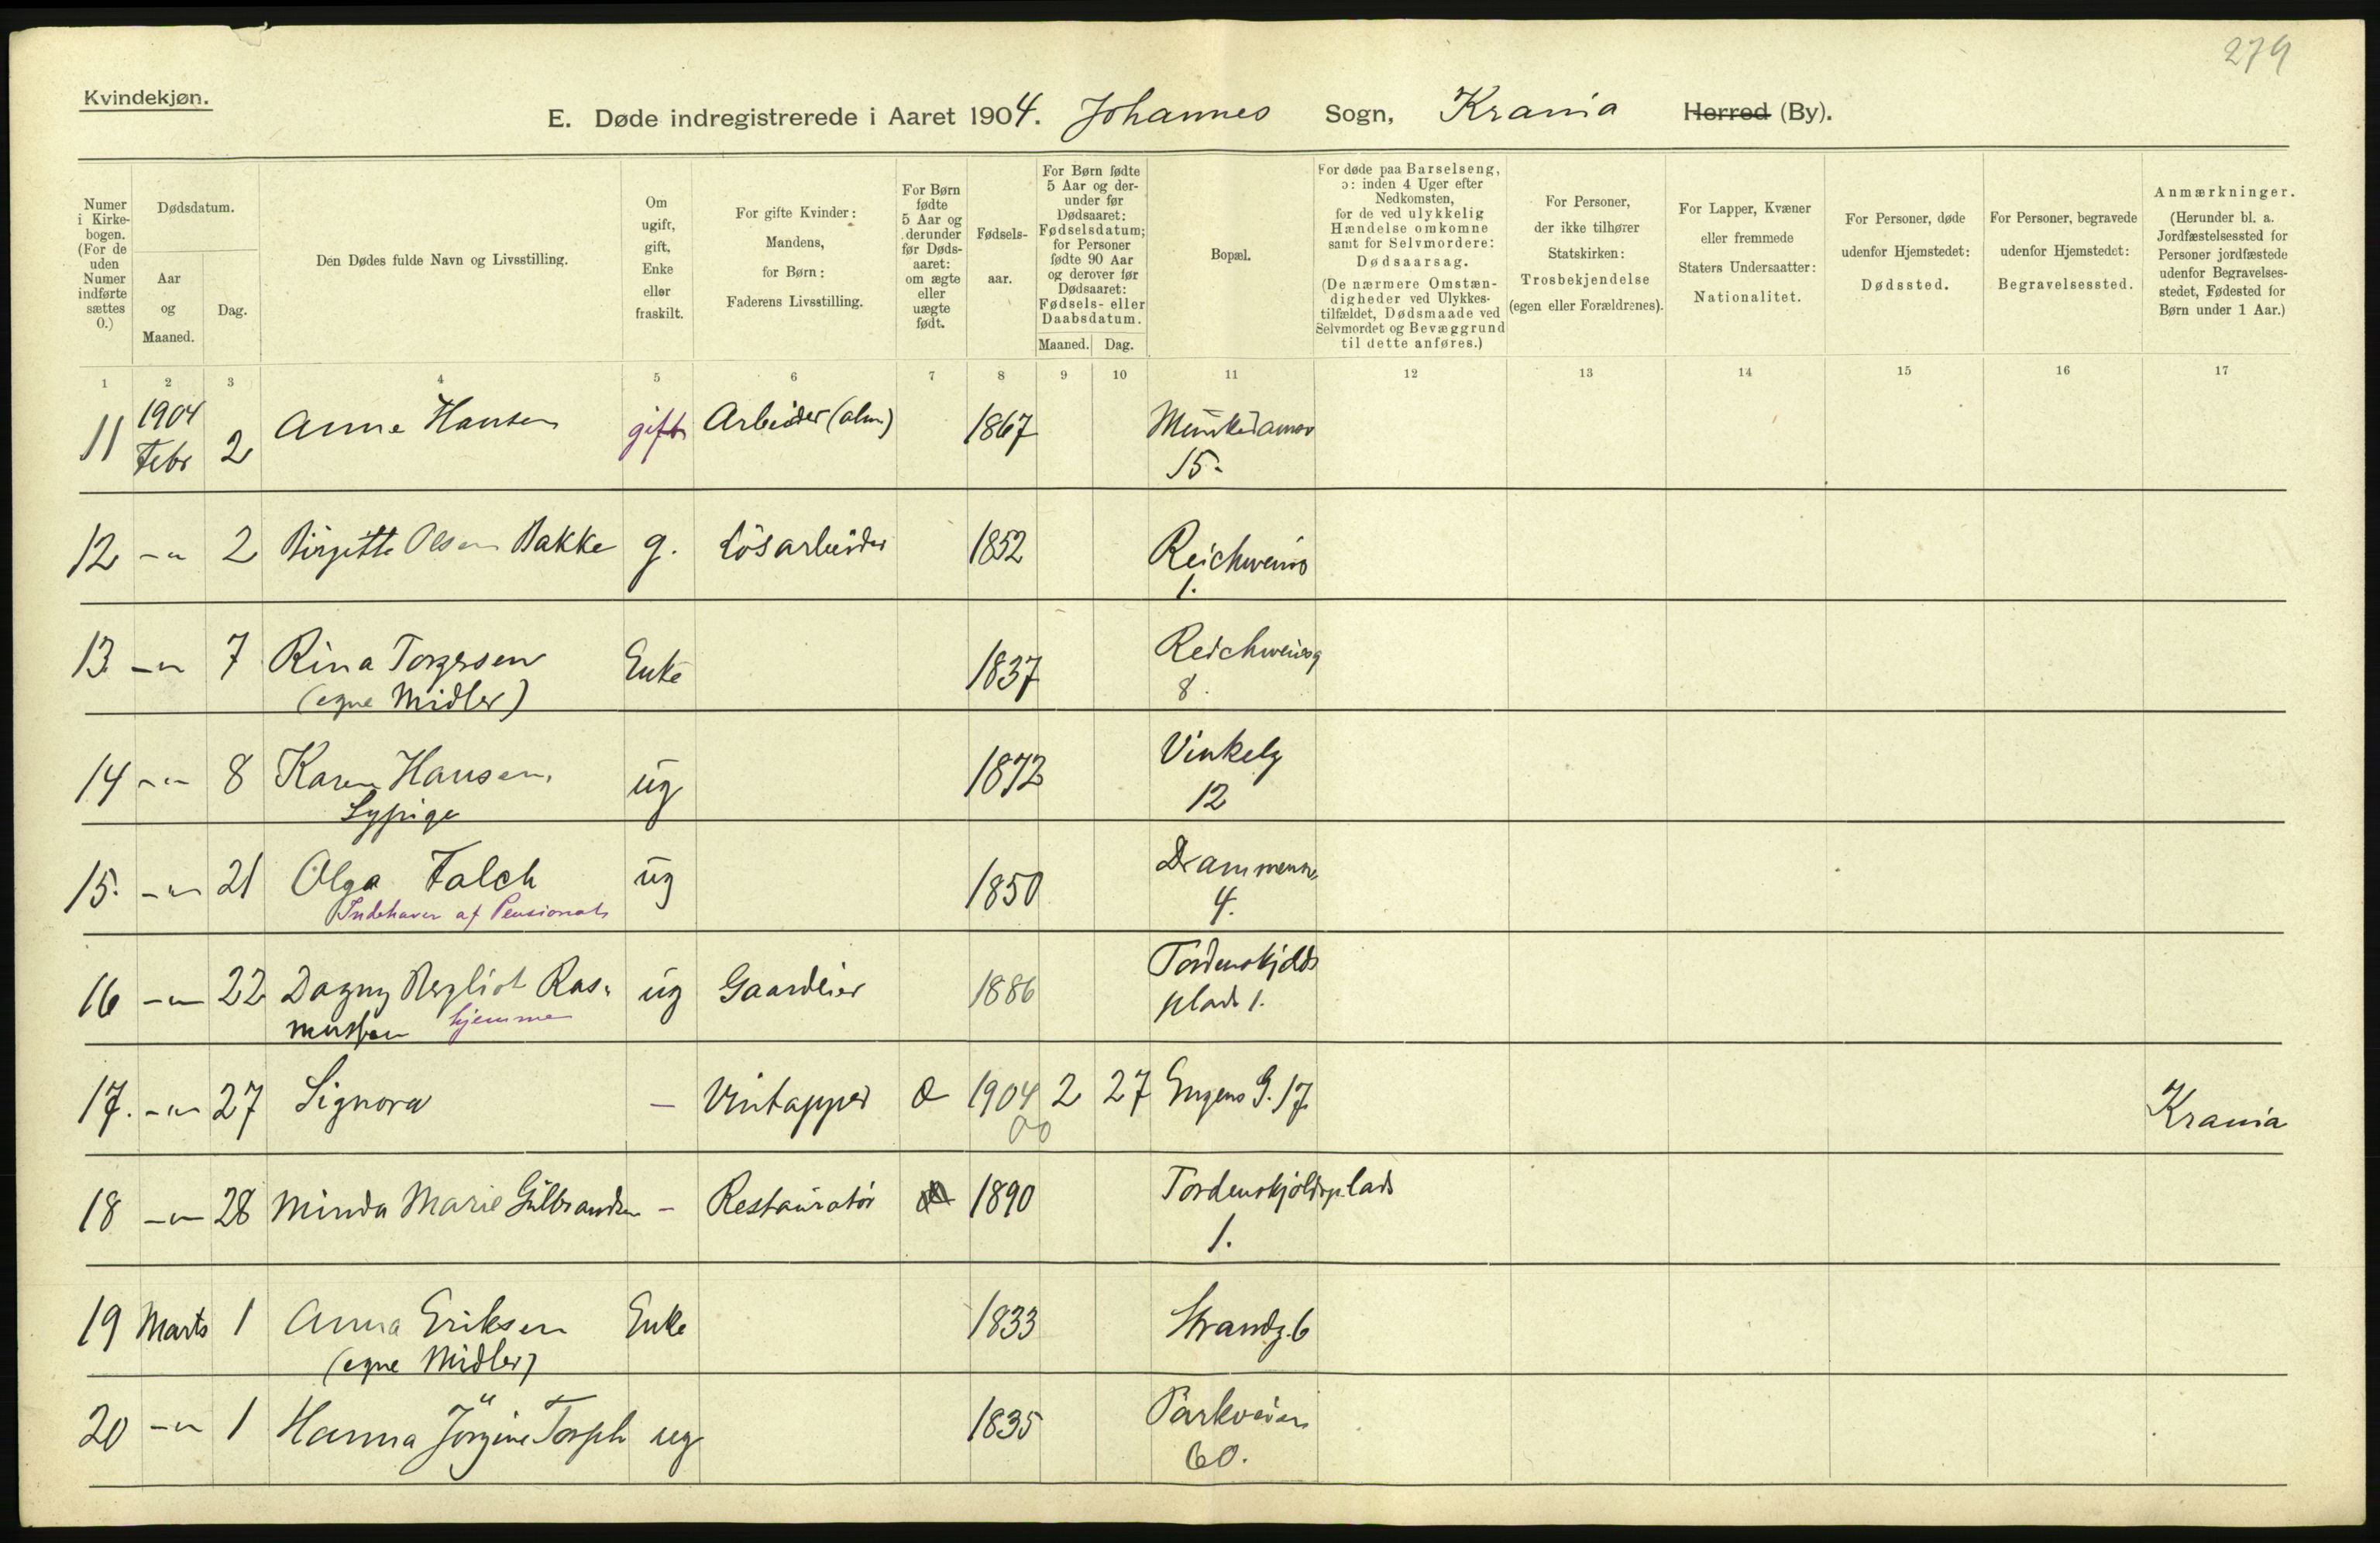 279
Kvindekjøn.
E. Døde indregistrerede i Aaret 1904. Johannes Sogn, Krania Herred (By).
Numer i Kirke-bogen. (For de uden Numer indførte sættes 0.)
Dødsdatum.
Aar og Maaned.
Dag.
Den Dødes fulde Navn og Livsstilling.
Om ugift, gift, Enke eller fraskilt.
For gifte Kvinder: Mandens, for Børn: Faderens Livsstilling.
For Børn fødte 5 Aar og derunder før Døds-aaret: om ægte eller uægte født.
Fødsels-aar.
For Børn fødte 5 Aar og der-under før Dødsaaret: Fødselsdatum; for Personer fødte 90 Aar og derover før Dødsaaret: Fødsels- eller Daabsdatum.
Maaned. Dag.
Bopæl.
For døde paa Barselseng, ɔ: inden 4 Uger efter Nedkomsten, for de ved ulykkelig Hændelse omkomne samt for Selvmordere: Dødsaarsag. (De nærmere Omstæn-digheder ved Ulykkes-tilfældet, Dødsmaade ved Selvmordet og Bevæggrund til dette anføres.)
For Personer, der ikke tilhører Statskirken: Trosbekjendelse (egen eller Forældrenes).
For Lapper, Kvæner eller fremmede Staters Undersaatter: Nationalitet.
For Personer, døde udenfor Hjemstedet: Dødssted.
For Personer, begravede udenfor Hjemstedet: Begravelsessted.
Anmærkninger. (Herunder bl. a. Jordfæstelsessted for Personer jordfæstede udenfor Begravelses-stedet, Fødested for Børn under 1 Aar.)
1 2 3 4 5 6 7 8 9 10 11 12 13 14 15 16 17
11 1904 Febr 2 Anne Hansen gift Arbeider (alm) 1867 Munkedamsv 15.
12 -"- 2 Birgitte Olsen Bakke g. Løsarbeider 1852 Reichweins 1.
13 -"- 7 Rina Torgersen Enke 1837 Reichweinsg 8.
(egne Midler)
14 -"- 8 Karen Hansen ug 1872 Vinkelg 12
Sypige
15. -"- 21 Olga Falch ug 1850 Drammensv 4.
Indehaver af Pensionat
16 -"- 22 Dagny Bergliot Ras- ug Gaardeier 1886 Tordenskjolds plads 1.
mussen hjemme
17. -"- 27 Signora - Vintapper 1904 2 27 Engens G. 17 Krania
00
18 -"- 28 Minda Marie Gulbrandsen - Restauratør 1890 Tordenskjoldsplads 1.
19 Marts 1 Anna Eriksen Enke 1833 Strandg. 6
(egne Midler)
20 -"- 1 Hanna Jørgine Torph ug 1835 Parkveien 60.